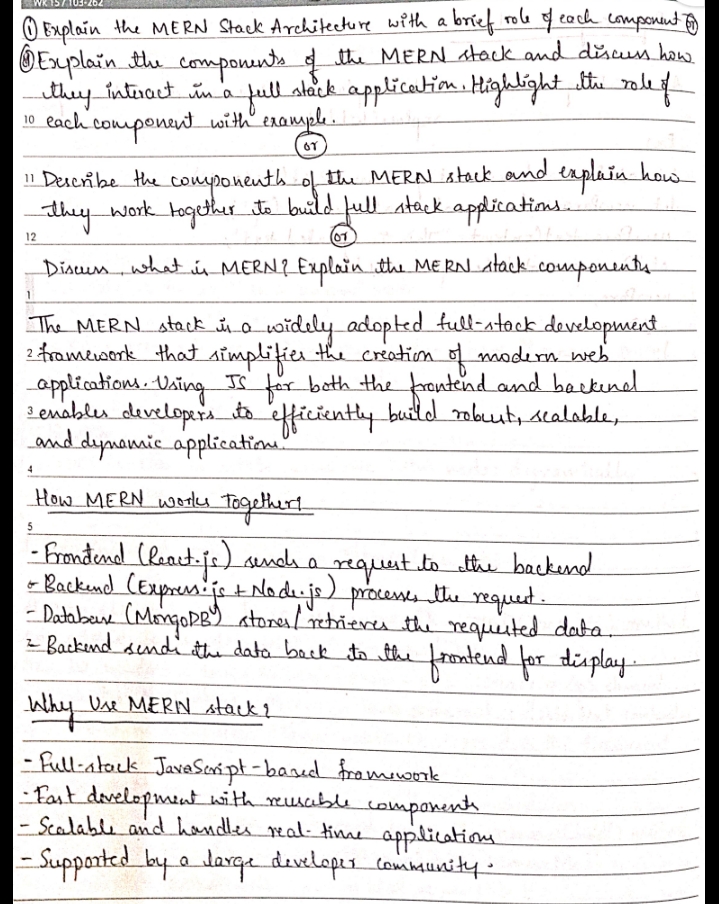 WK 15 / 103-262
① Explain the MERN Stack Architecture with a brief role of each component or
① Explain the components of the MERN stack and discuss how
they interact in a full stack application. Highlight the role of
10 each component with example.
or
11 Describe the components of the MERN stack and explain how
they work together to build full stack applications.
12 or
Discuss, what is MERN? Explain the MERN stack components
1
The MERN stack is a widely adopted full-stack development
2 framework that simplifies the creation of modern web
applications. Using JS for both the frontend and backend
3 enables developers to efficiently build robust, scalable,
and dynamic applications.
4
How MERN works Together?
5
- Frontend (React.js) sends a request to the backend
6 - Backend (Express.js + Node.js) processes the request.
- Database (MongoDB) stores/retrieves the requested data.
- Backend sends the data back to the frontend for display.
Why Use MERN stack?
- Full-stack JavaScript-based framework
- Fast development with reusable components
- Scalable and handles real-time applications
- Supported by a large developer community.